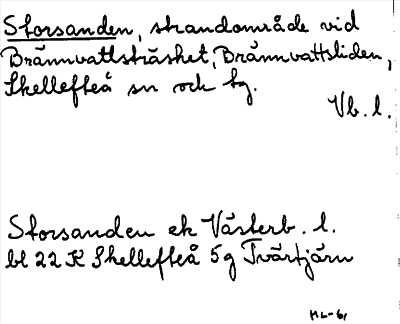 Storsanden, strandområde vid
Brännvattsträsket, Brännvattsliden,
Skellefteå sn och tg.
Vb. l.
Storsanden ek Västerb. l.
bl 22 K Skellefteå 5g Tvärtjärn